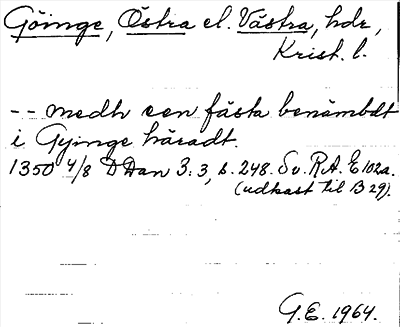 Göinge, Östra el. Västra, hdr,
Krist. l.
-- medh een fästa benämbdt
i Gyinge häradt.
1350 4/8 DDan 3:3, s. 248. Sv. R.A. E 102a.
(udkast til B 29).
G.E. 1964.